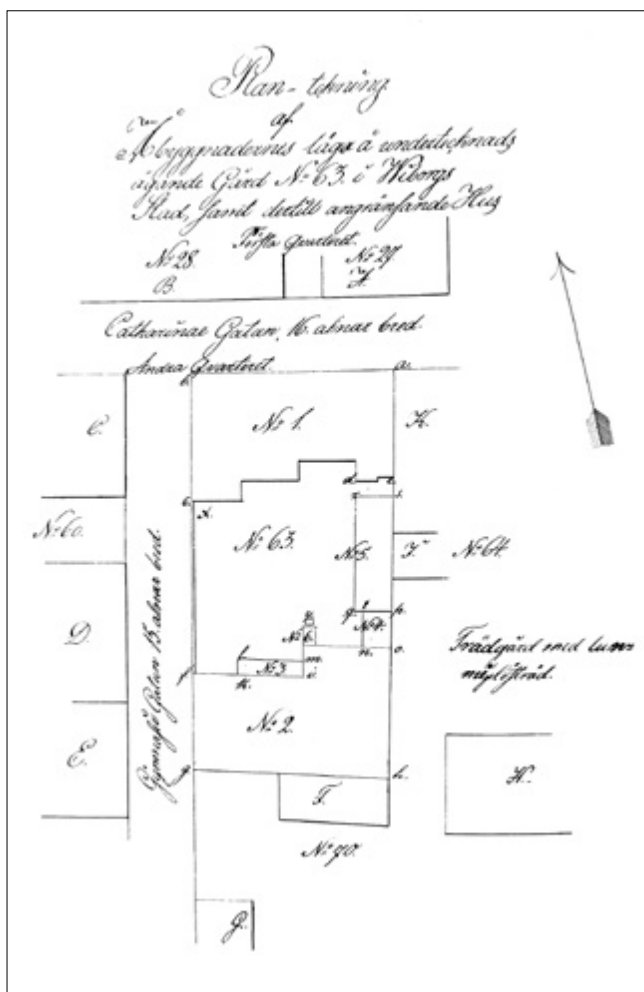 Plan-tekning
af
Åbyggnadernes läge å undertecknads
ägande Gård No 63. i Wiborgs
Stad, samt dertill angränsande Hus
Första Quarteret.
No 28. No 27.
B. A.
Catharinae Gatan, 16. alnar bred.
Andra Quarteret.
b. a.
C. No 1. K.
d. e.
c. r. s.
x.
No 60. No 63. No 5. I. No 64.
Gymnasie Gatan 15. alnar bred.
q. t. p.
D. No 6. No 4.
n. o.
Trädgård med
l. m.
No 3.
f. k. i.
E. No 2. H.
g. h.
F.
No 70.
G.